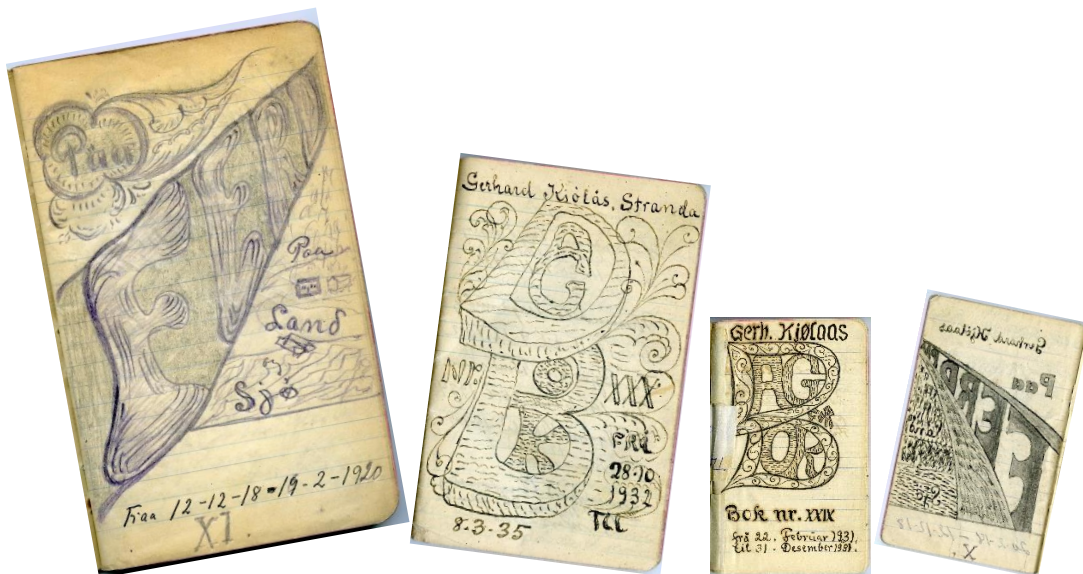 Paa
FERD
Paa
Land
Sjø
Fraa 12-12-18-19-2-1920
XI
Gerhard Kjølås, Stranda
DAG
Nr.
BOK
XXX
FRÅ
28-10
1932
Til
8-3-35
Gerh. Kjølaas
DAG
BOK
Bok nr. XXIX
frå 22. Februar 1931.
til 31. Desember 1931.
Gerhard Kjølaas
Paa
FERD
X